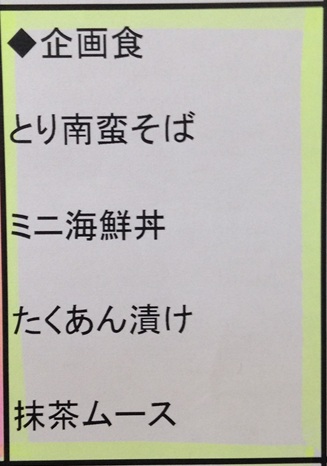 ◆企画食
とり南蛮そば
ミニ海鮮丼
たくあん漬け
抹茶ムース